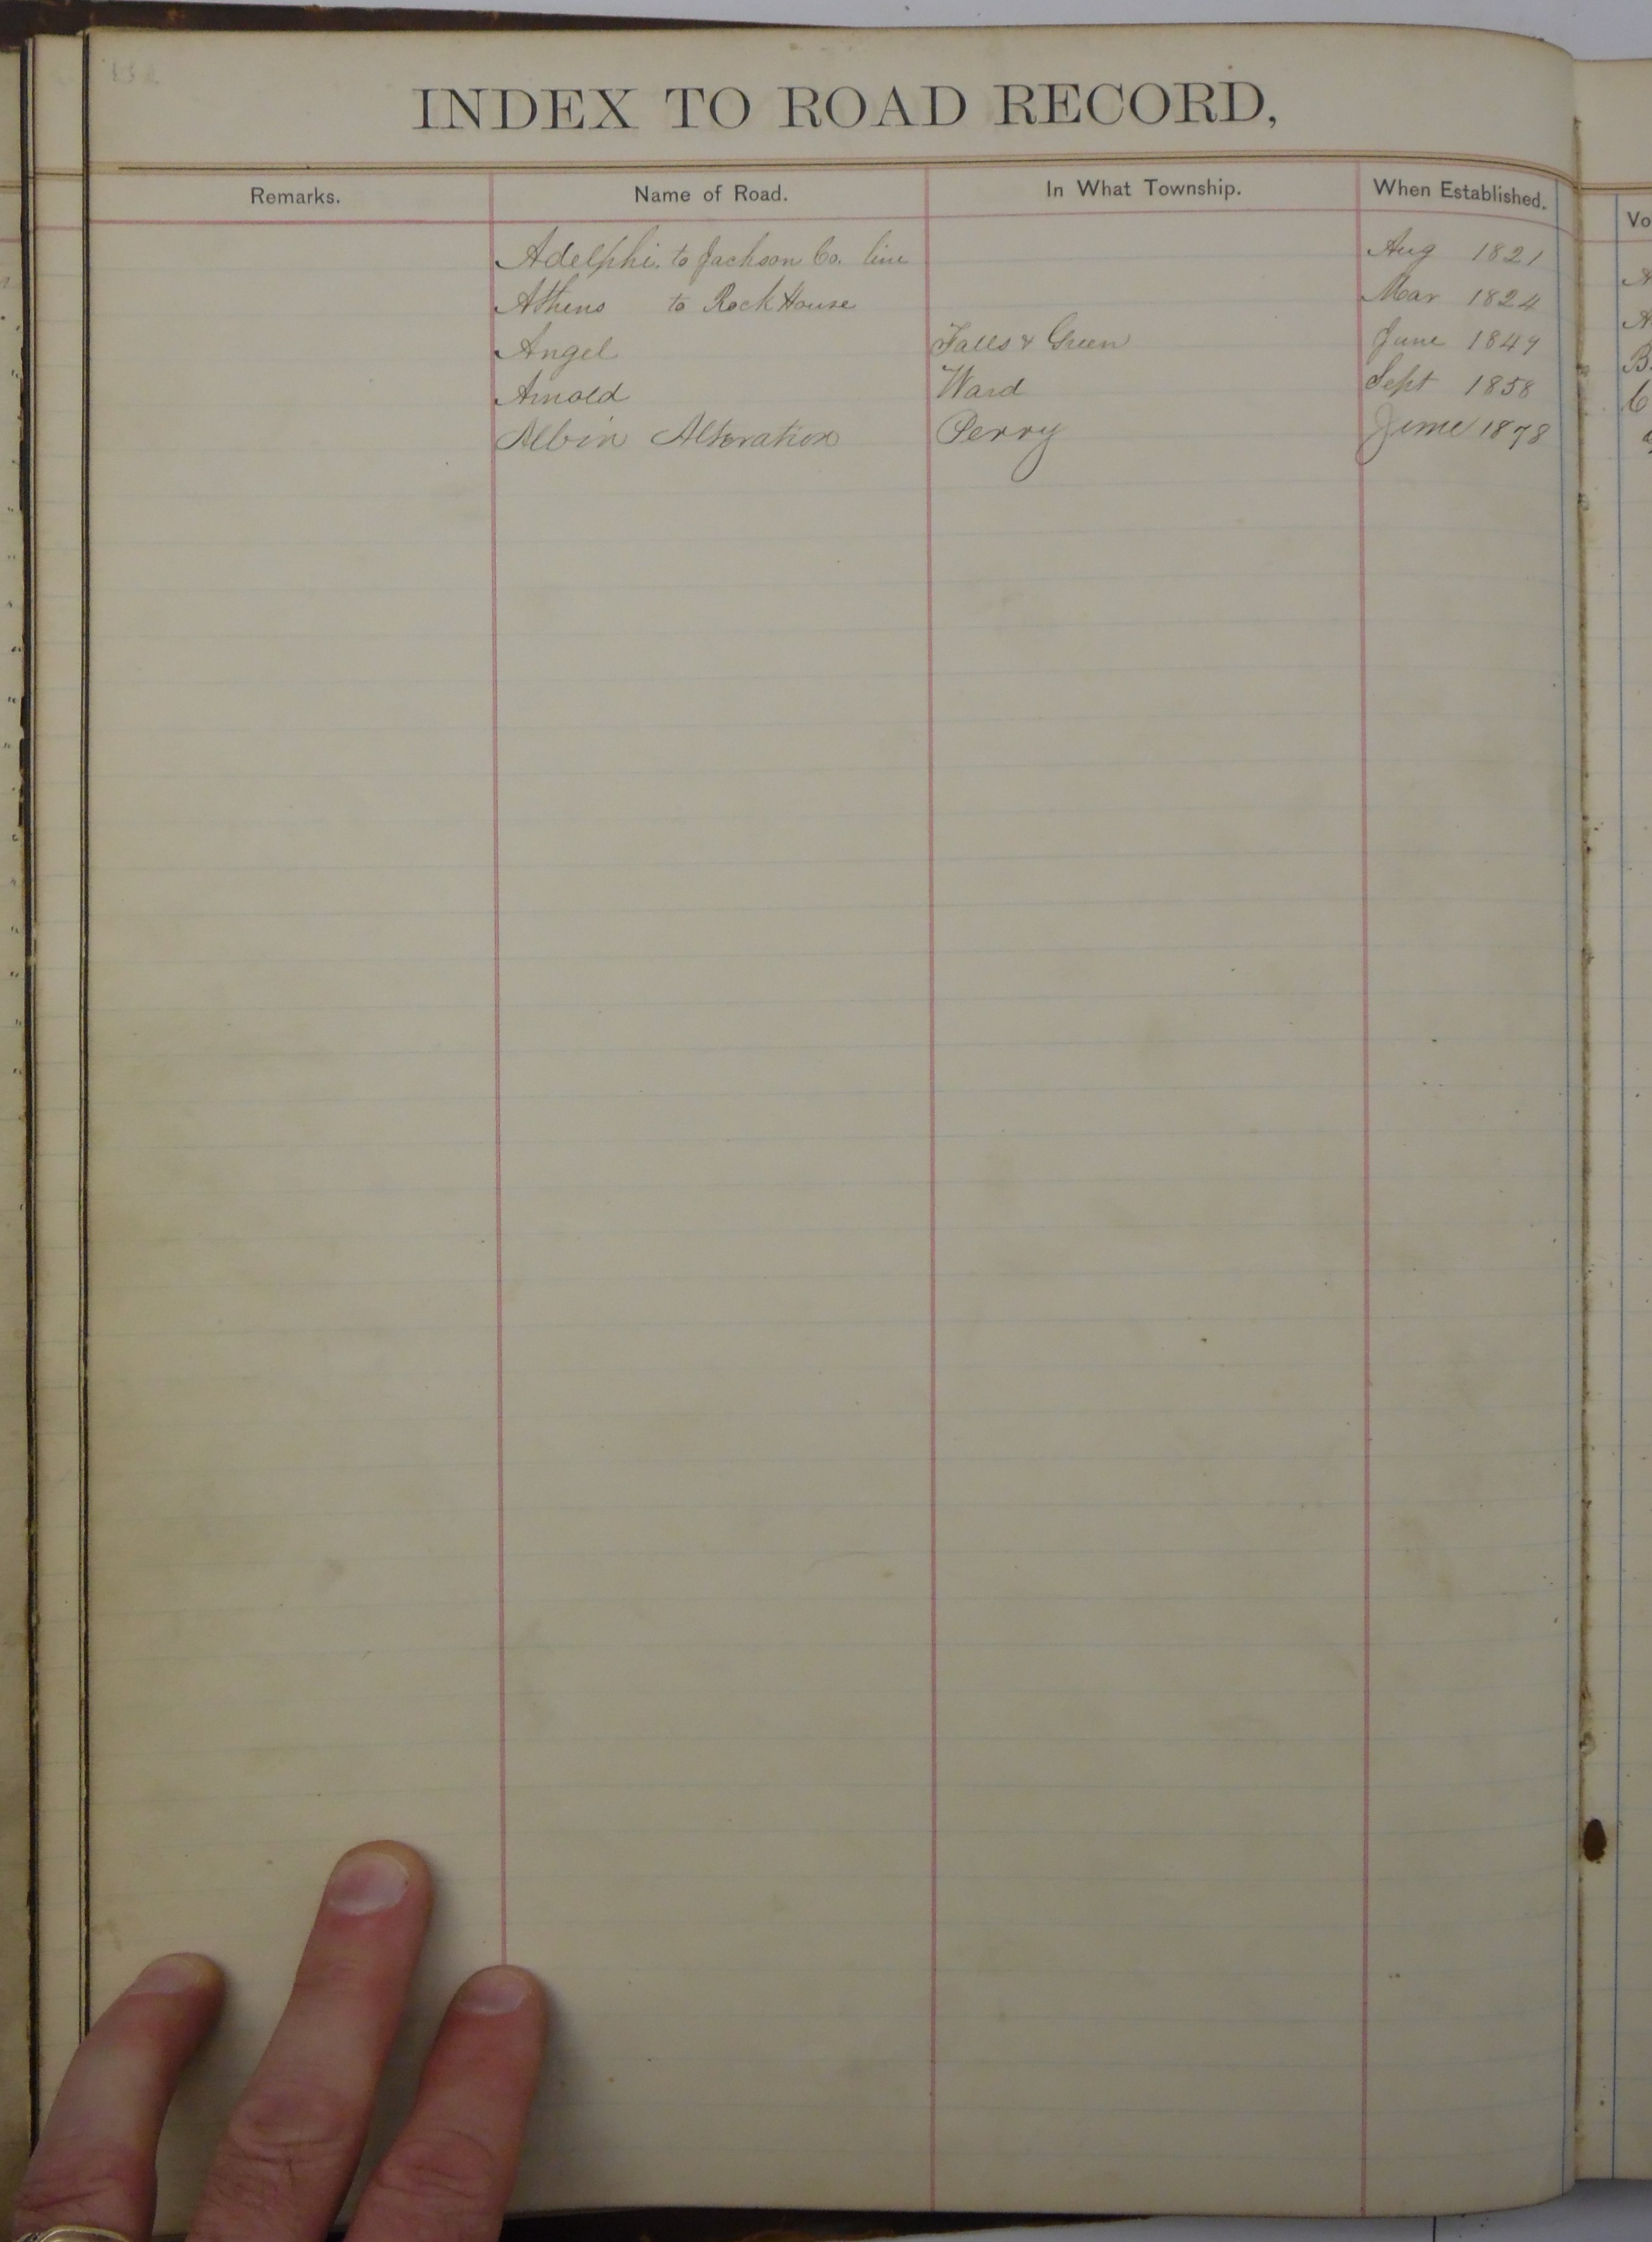 INDEX TO ROAD RECORD,
Remarks. Name of Road. In What Township. When Established. Vo
Adelphi. to Jackson Co. line Aug 1821
Athens to Rock House Mar 1824
Angel Falls & Green June 1849
Arnold Ward Sept 1858
Albin Alteration Perry June 1878